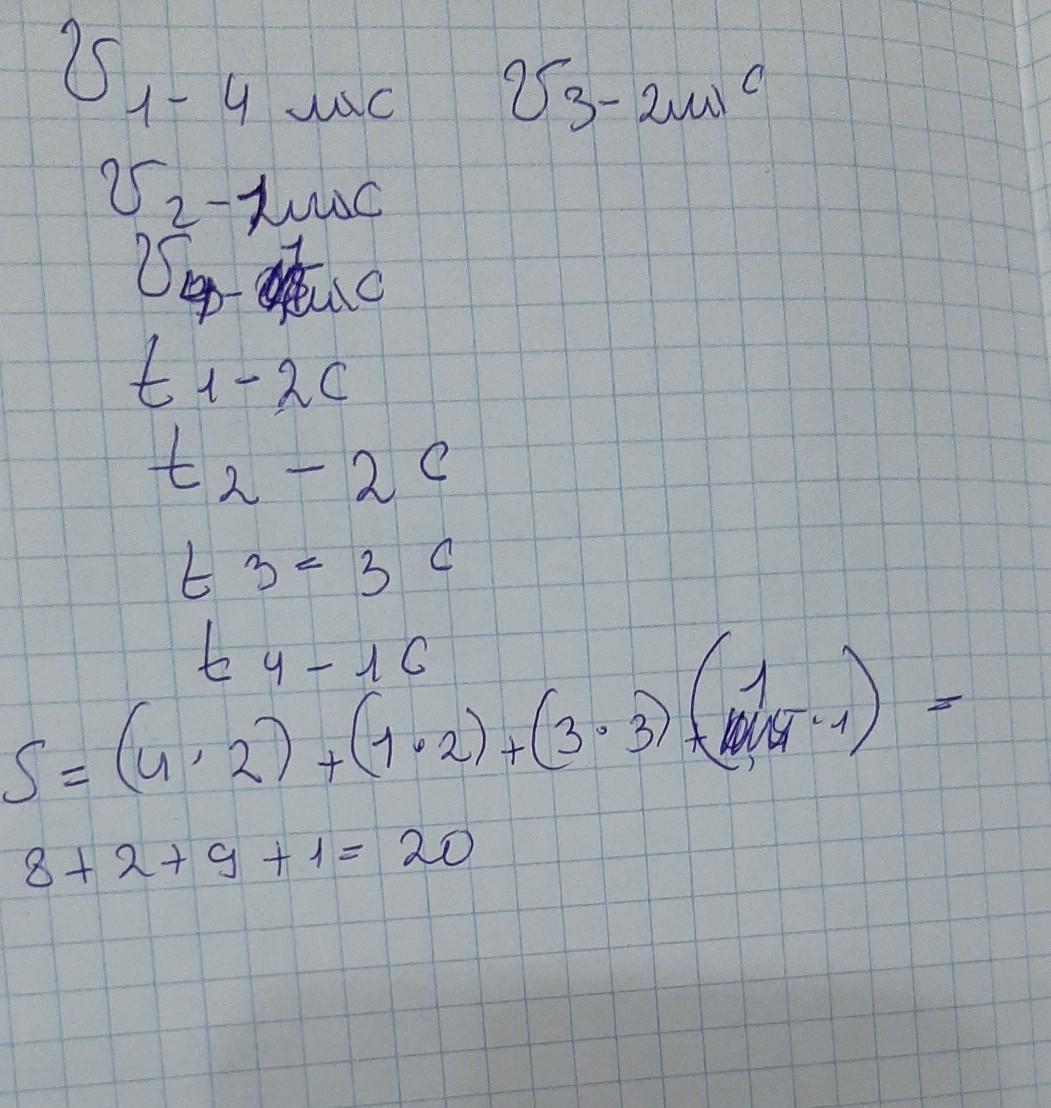 V1 - 4 м\с V3 - 2 м\с
V2 - 1 м\с
V - 1 м\с
t 1 - 2 с
t 2 - 2 с
t 3 = 3 с
t 4 - 1 с
S = (4 · 2) + (1 · 2) + (3 · 3) + (1 · 1) =
8 + 2 + 9 + 1 = 20